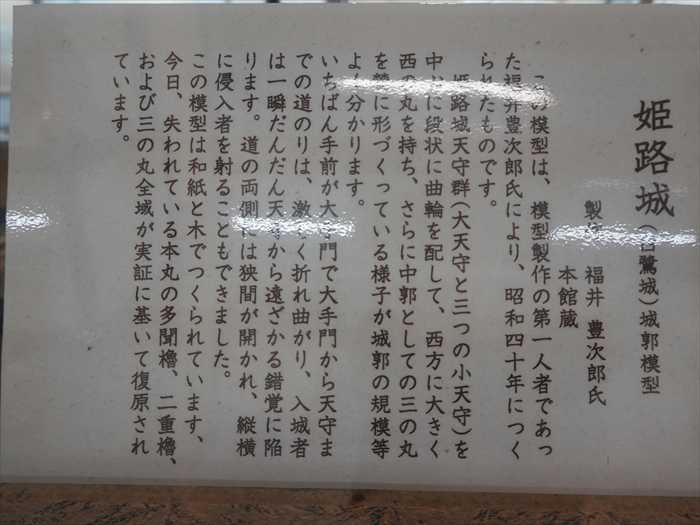 姫路城(白鷺城)城郭模型
製作 福井 豊次郎氏
本館蔵
この模型は、模型製作の第一人者であっ
た福井豊次郎氏により、昭和四十年につく
られたものです。
姫路城天守群(大天守と三つの小天守)を
中心に段状に曲輪を配して、西方に大きく
西の丸を持ち、さらに中郭としての三の丸
を 形づくっている様子が城郭の規模等
よく分かります。
いちばん手前が大手門で大手門から天守ま
での道のりは、激しく折れ曲がり、入城者
は一瞬だんだん天守から遠ざかる錯覚に陥
ります。道の両側には狭間が開かれ、縦横
に侵入者を射ることもできました。
この模型は和紙と木でつくられています、
今日、失われている本丸の多聞櫓、二重櫓、
および三の丸全域が実証に基いて復原され
ています。